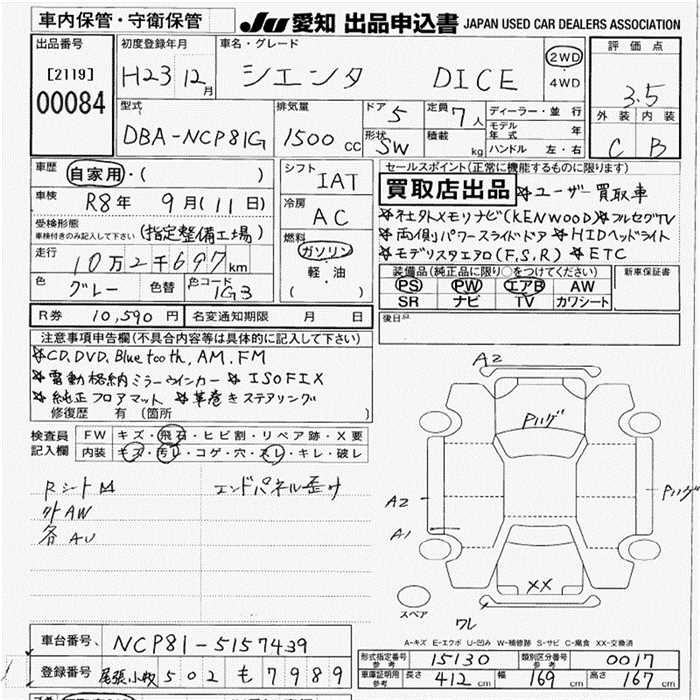 車内保管・守衛保管
JU 愛知 出品申込書 JAPAN USED CAR DEALERS ASSOCIATION
出品番号
[2119]
00084
初度登録年月
H23 12月
車名・グレード
シエンタ DICE
2WD
・
4WD
評価点
3.5
外装 内装
C B
型式
DBA-NCP81G
排気量
1500 cc
ドア 5
形状 SW
定員 7人
積載 kg
ディーラー・並行
モデル年式 年
ハンドル 左・右
車歴
自家用・( )
車検 R8年 9月(11日)
受検形態
車検付きのみ記入して下さい (指定整備工場)
走行
10万2千697km
色 グレー 色替 色コード 1G3
シフト
IAT
冷房
AC
燃料
ガソリン
・
軽・油
( )
セールスポイント(正常に機能するものに限ります)
買取店出品 ☆ユーザー買取車
☆社外メモリナビ(KENWOOD)☆フルセグTV
☆両側パワースライドドア ☆HIDヘッドライト
☆モデリスタエアロ(F,S,R) ☆ETC
装備品(純正品に限り○をつけてください)
PS PW エアB AW
SR ナビ TV カワシート
新車保証書
R券 10,590円 名変通知期限 月 日
後日品
注意事項申告欄(不具合内容等は具体的に記入して下さい)
☆CD,DVD,Bluetooth,AM,FM
☆電動格納ミラーウインカー ☆ISOFIX
☆純正フロアマット ☆革巻きステアリング
修復歴 有(箇所 )
検査員記入欄
FW キズ・飛石・ヒビ割・リペア跡・X要
内装 キズ・汚レ・コゲ・穴・スレ・キレ・破レ
RシートM エンドパネル歪け
外AW
各AU
A2
Pハゲ
A2
A1
Pハゲ
XX
スペア
ワレ
A-キズ E-エクボ U-凹み W-補修跡 S-サビ C-腐食 XX-交換済
車台番号 NCP81-5157439
登録番号 尾張小牧 502 も 7989
形式指定番号 参考 15130 類別区分番号 参考 0017
車庫証明用 参考 長さ 412cm 幅 169cm 高さ 167cm